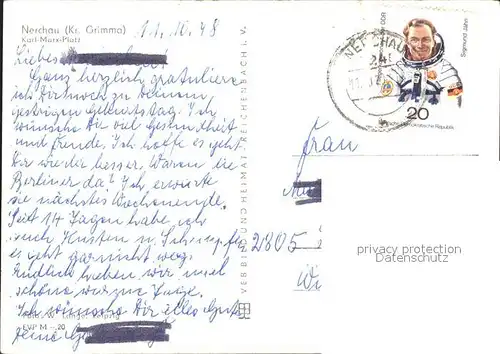 Nerchau (Kr. Grimma)
Karl-Marx-Platz
11.10.78
Liebes
Ganz herzlich gratuliere
ich Dir noch zu Deinem
gestrigen Geburtstag. Ich
wünsche Dir viel Gesundheit
und Freude. Ich hoffe es geht
Dir wieder besser. Waren die
Berliner da? Ich erwarte
sie nächstes Wochenende.
Seit 14 Tagen habe ich
auch Husten u. Schnupfen
es geht garnicht weg.
Endlich haben wir mal
schöne warme Tage.
Ich wünsche Dir alles Gute
Deine
VEB BILD UND HEIMAT REICHENBACH I. V.
DDR
Sigmund Jähn
20
Deutsche Demokratische Republik
NERCHAU
Frau
2805
privacy protection
Datenschutz